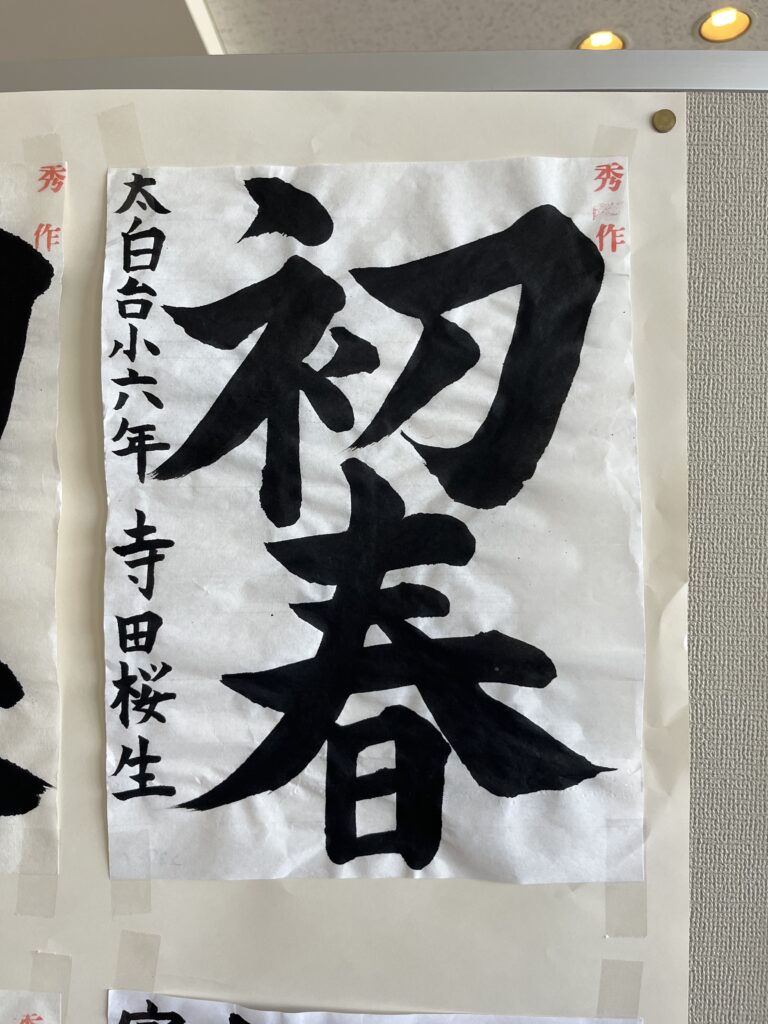 秀作
初春
太白台小六年 寺田桜生
秀作